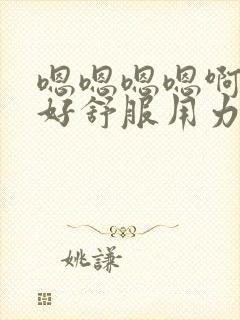 嗯嗯嗯嗯啊
好舒服用力
姚謙